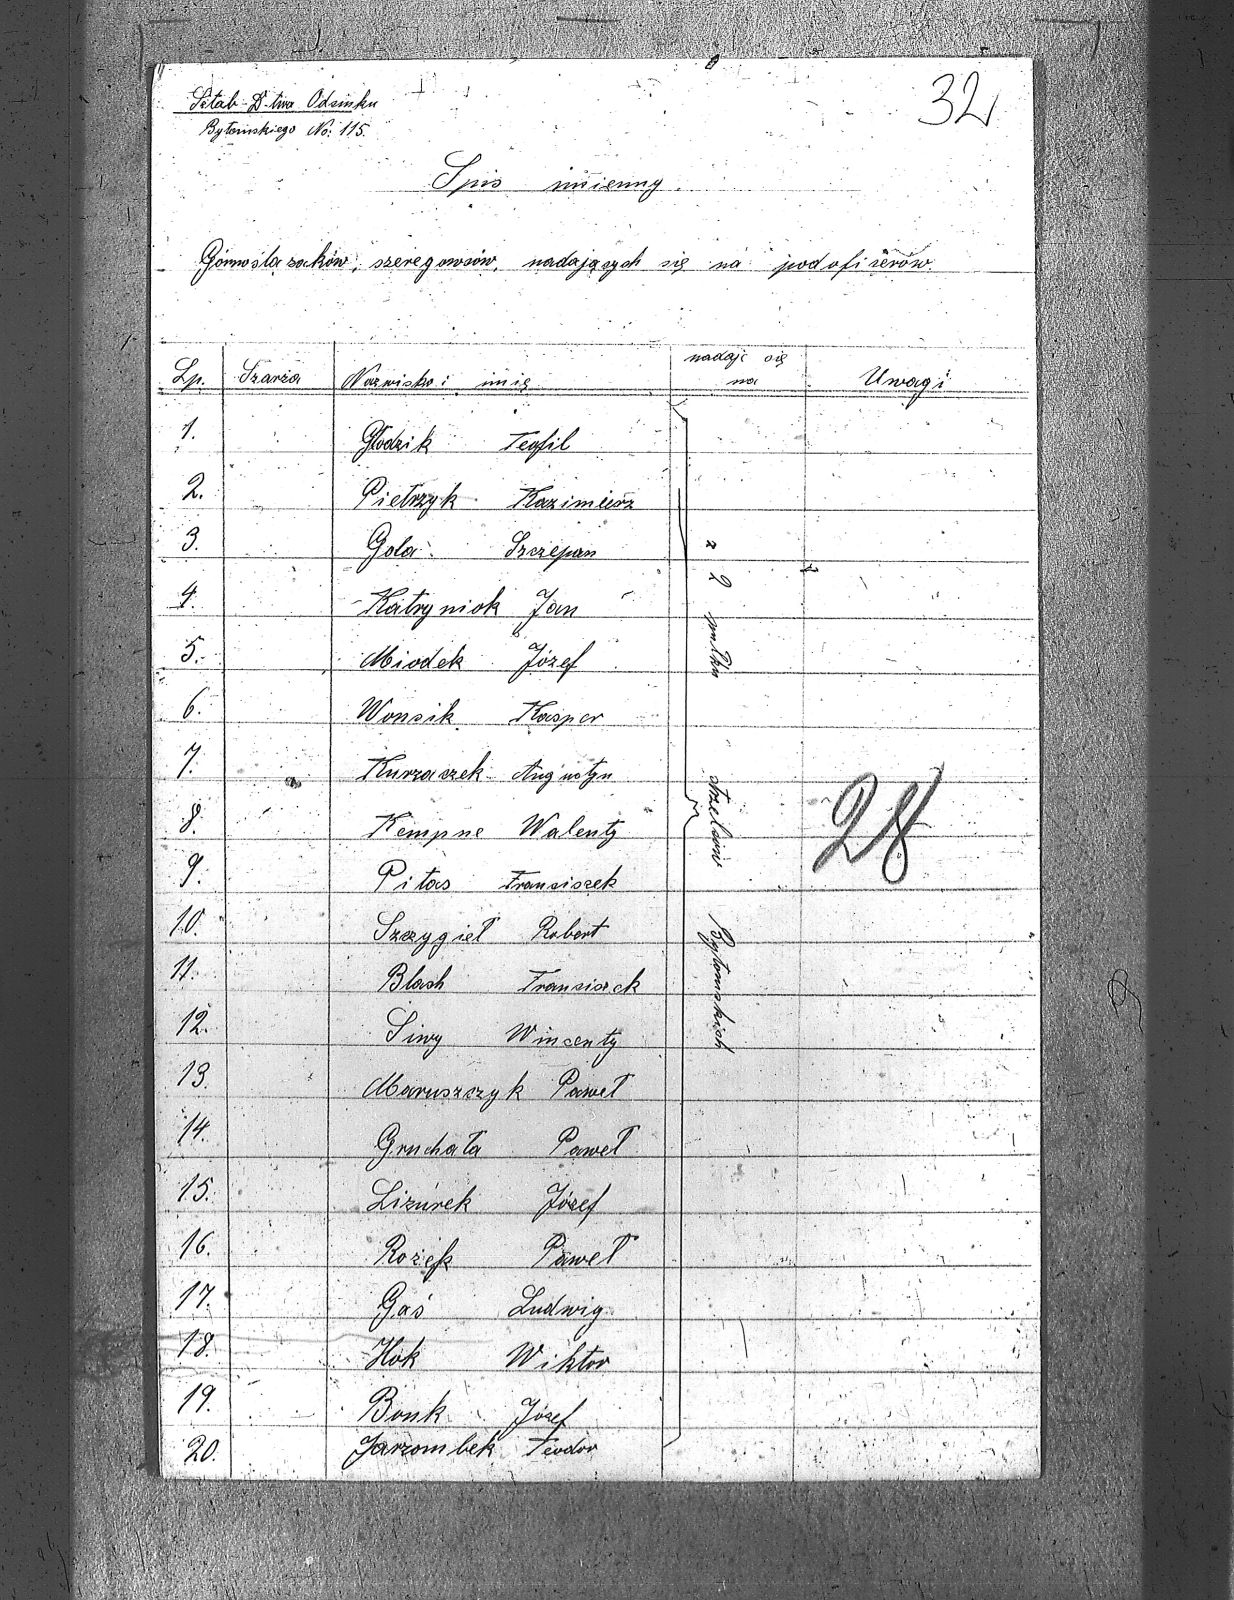 32
Sztab D-twa Odcinku
Bytomskiego No: 115.
Spis imienny.
Górnoślazaków, szeregowców, nadających się na podoficerów.
Lp. Szarża Nazwisko i imię nadaje się na Uwagi
1. Głodzik Teofil
2. Pietrzyk Kazimierz
3. Gola Szczepan
4. Katryniok Jan
5. Miodek Józef
6. Wonsik Kasper
7. Kurzaczek Augustyn
8. Kempne Walenty
9. Pitas Franciszek
10. Szczygieł Robert
11. Blach Franciszek
12. Siwy Wincenty
13. Maruszczyk Paweł
14. Gruchała Paweł
15. Lizurek Józef
16. Rożek Paweł
17. Gaś Ludwig
18. Hok Wiktor
19. Bonk Józef
20. Jarzombek Teodor
z 2 pułku strzelców Bytomskich
28